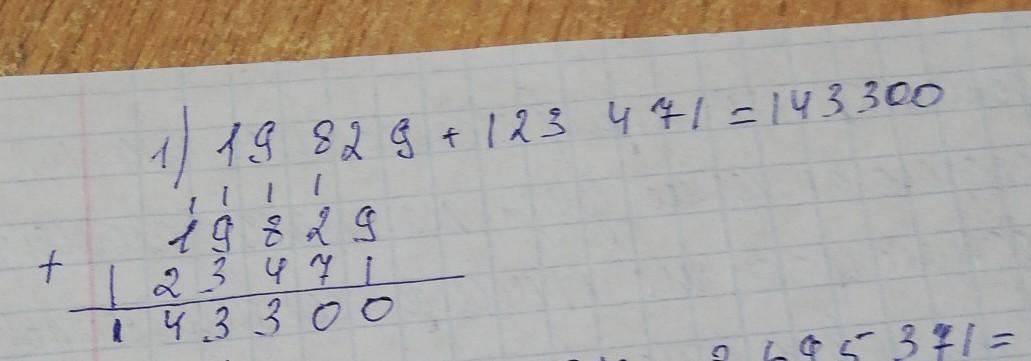 1) 19 829 + 123 471 = 143 300
1 1 1 1
19829
+ 123471
143300
5 371 =